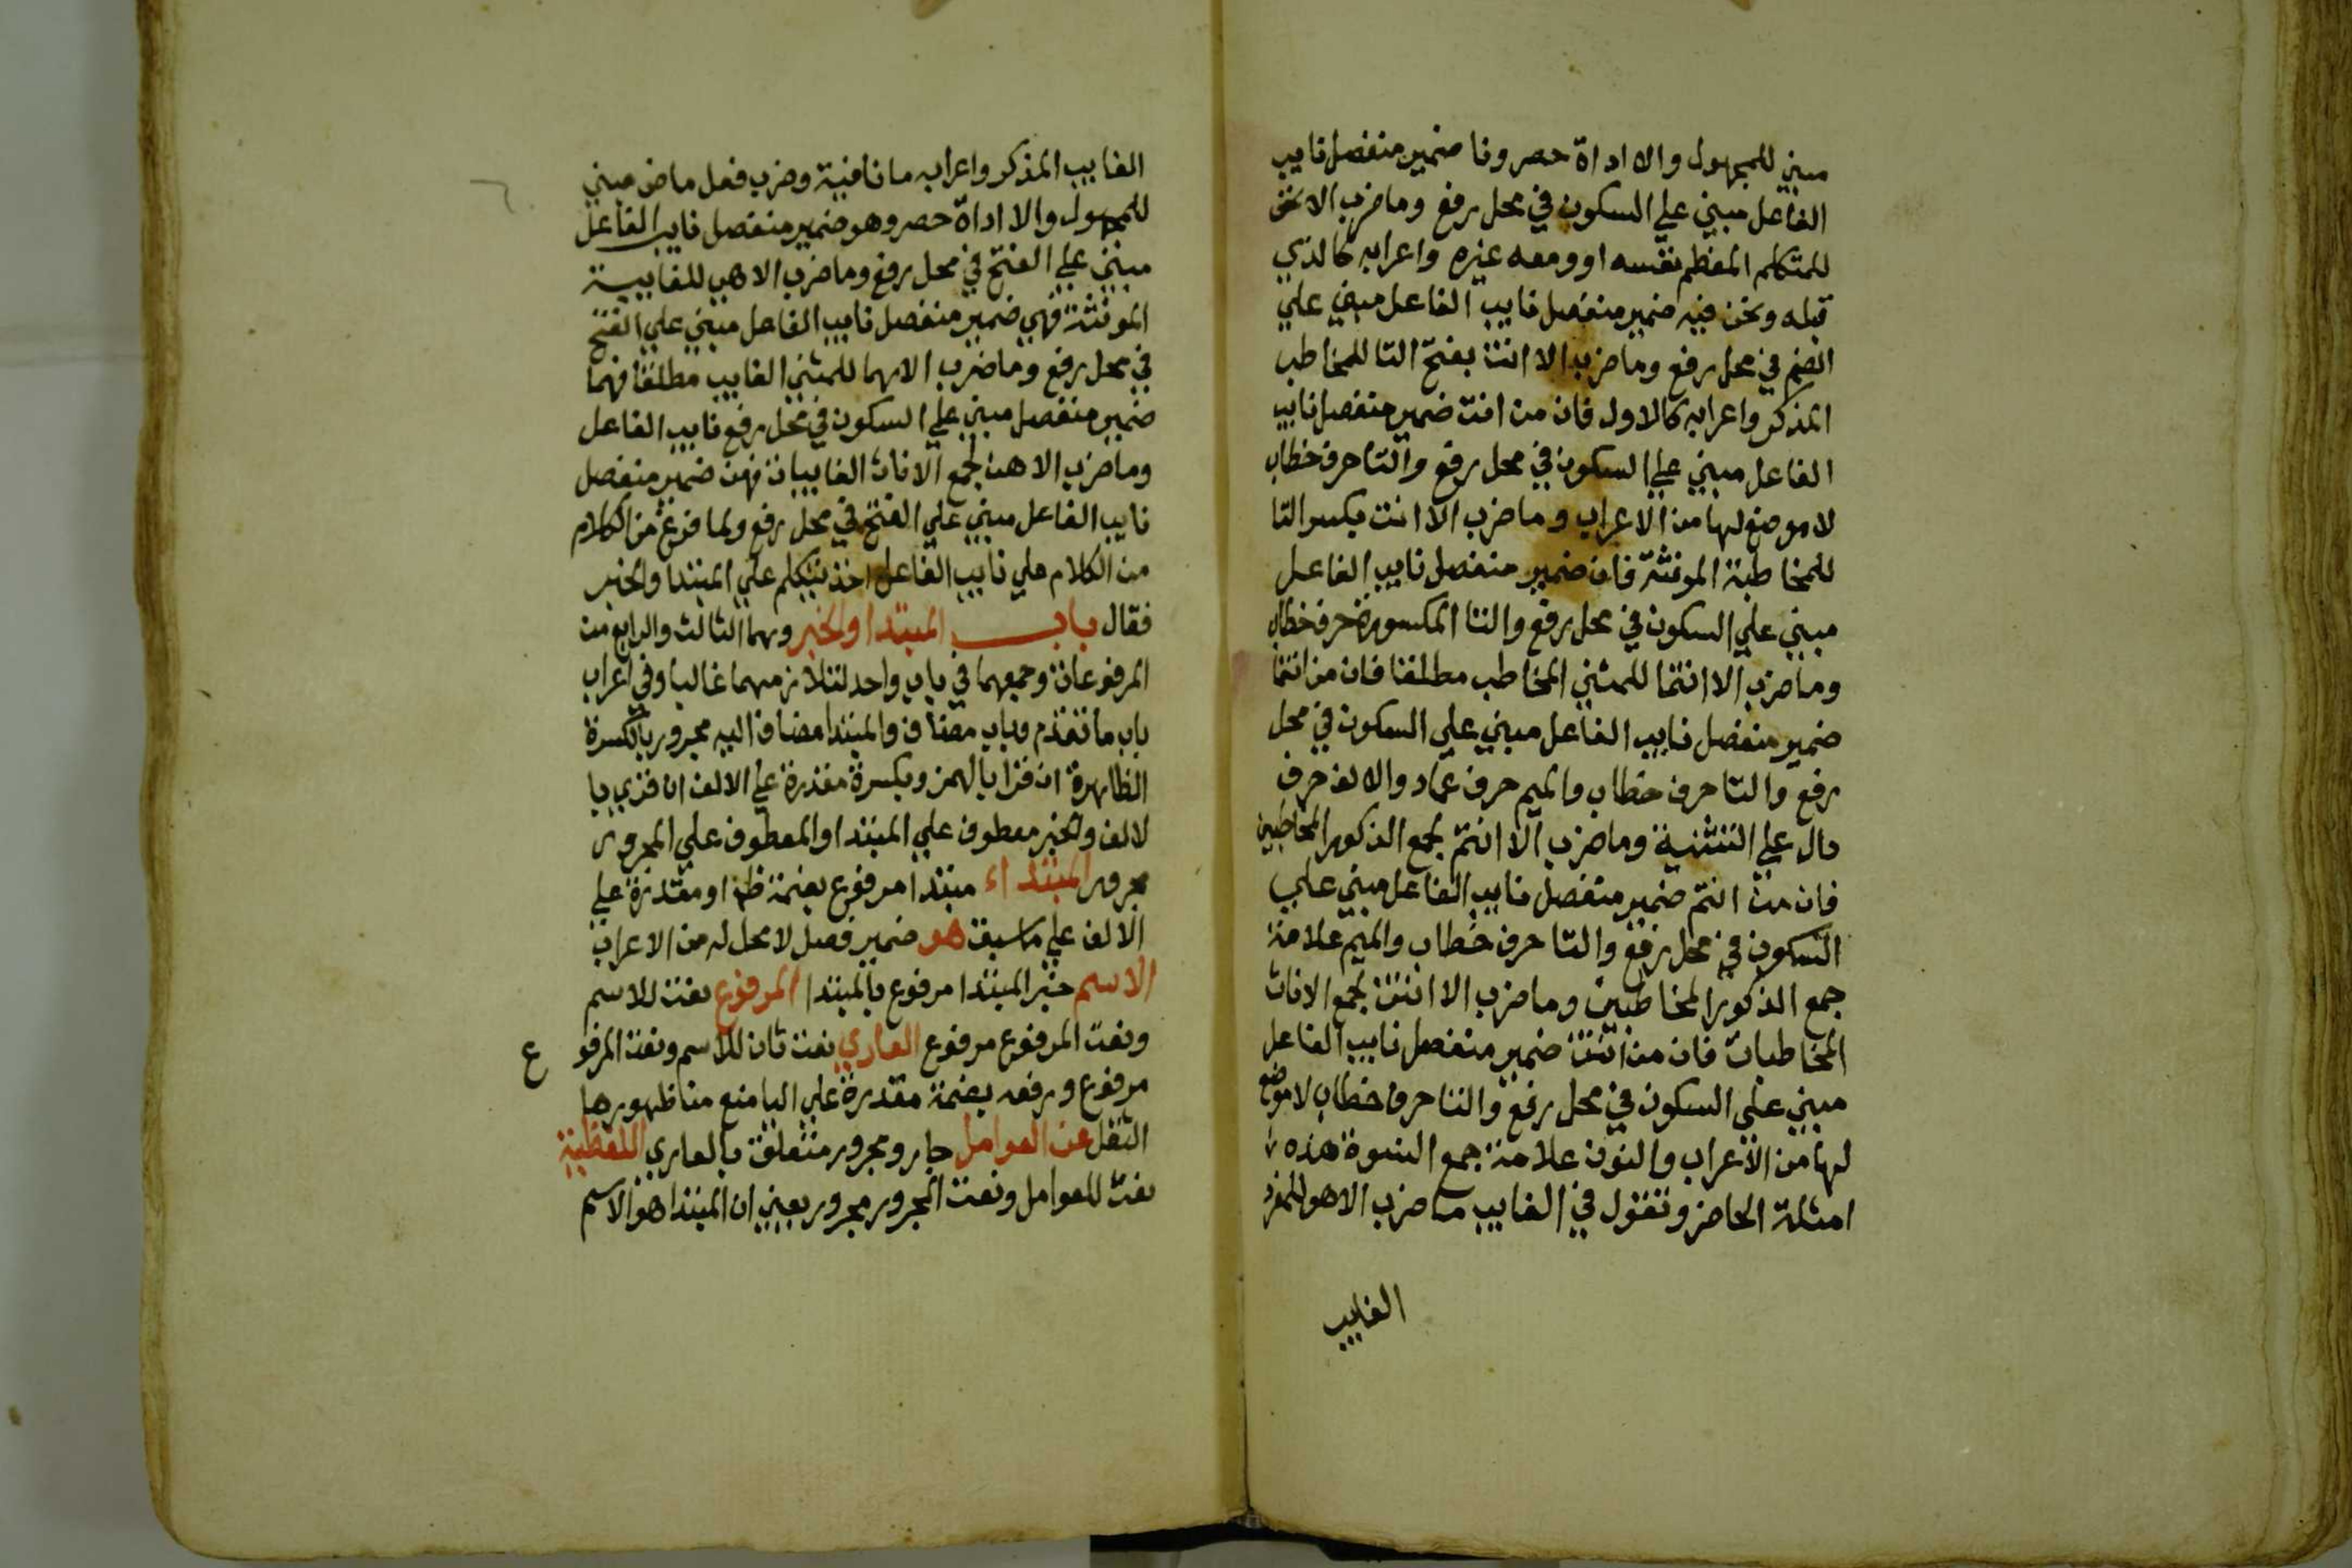 مبني للمجهول والا اداة حصر ونا ضمير منفصل نايب
الفاعل مبني علي السكون في محل رفع وما ضرب الا نحن
للمتكلم المعظم نفسه او ومعه غيره واعرابه كالذي
قبله ونحن فيه ضمير منفصل نايب الفاعل مبني علي
الضم في محل رفع وما ضرب الا انت بفتح التا للمخاطب
المذكر واعرابه كالاول فان من انت ضمير منفصل نايب
الفاعل مبني علي السكون في محل رفع والتا حرف خطاب
لا موضع لها من الاعراب وما ضرب الا انت بكسر التا
للمخاطبة المونثة فان ضمير منفصل نايب الفاعل
مبني علي السكون في محل رفع والتا المكسورة حرف خطاب
وما ضرب الا انتما للمثني المخاطب مطلقا فان من انتما
ضمير منفصل نايب الفاعل مبني علي السكون في محل
رفع والتا حرف خطاب والميم حرف عماد والالف حرف
دال علي التثنية وما ضرب الا انتم لجمع الذكور المخاطبين
فان من انتم ضمير منفصل نايب الفاعل مبني علي
السكون في محل رفع والتا حرف خطاب والميم علامة
جمع الذكور المخاطبين وما ضرب الا انتن لجمع الاناث
المخاطبات فان من انتن ضمير منفصل نايب الفاعل
مبني علي السكون في محل رفع والتا حرف خطاب لا موضع
لها من الاعراب والنون علامة جمع النسوة هذه
امثلة الحاضر وتقول في الغايب ما ضرب الا هو للمفرد
الغايب
الغايب المذكر واعرابه ما نافية وضرب فعل ماض مبني
للمجهول والا اداة حصر وهو ضمير منفصل نايب الفاعل
مبني علي الفتح في محل رفع وما ضرب الا هي للغايبة
المونثة فهي ضمير منفصل نايب الفاعل مبني علي الفتح
في محل رفع وما ضرب الا هما للمثني الغايب مطلقا فهما
ضمير منفصل مبني علي السكون في محل رفع نايب الفاعل
وما ضرب الا هن لجمع الاناث الغايبات فهن ضمير منفصل
نايب الفاعل مبني علي الفتح في محل رفع ولما فرغ من الكلام
من الكلام علي نايب الفاعل اخذ يتكلم علي المبتدا والخبر
فقال باب المبتدا والخبر وهما الثالث والرابع من
المرفوعات وجمعهما في باب واحد لتلازمهما غالبا وفي اعراب
باب ما تقدم وباب مضاف والمبتدا مضاف اليه مجرور بالكسرة
الظاهرة ان قرا بالهمز وبكسرة مقدرة علي الالف ان قري با
لالف والخبر معطوف علي المبتدا والمعطوف علي المجرور
مجرور المبتداء مبتدا مرفوع بضمة ظا او مقدرة علي
الالف علي ما سبق هو ضمير فصل لا محل له من الاعراب
الاسم خبر المبتدا مرفوع بالمبتدا المرفوع نعت للاسم
ونعت المرفوع مرفوع العاري نعت ثان للاسم ونعت المرفو ع
مرفوع ورفعه بضمة مقدرة علي اليا منع من ظهورها
الثقل عن العوامل جار ومجرور متعلق بالعاري اللفظية
نعت للعوامل ونعت المجرور مجرور يعني ان المبتدا هو الاسم